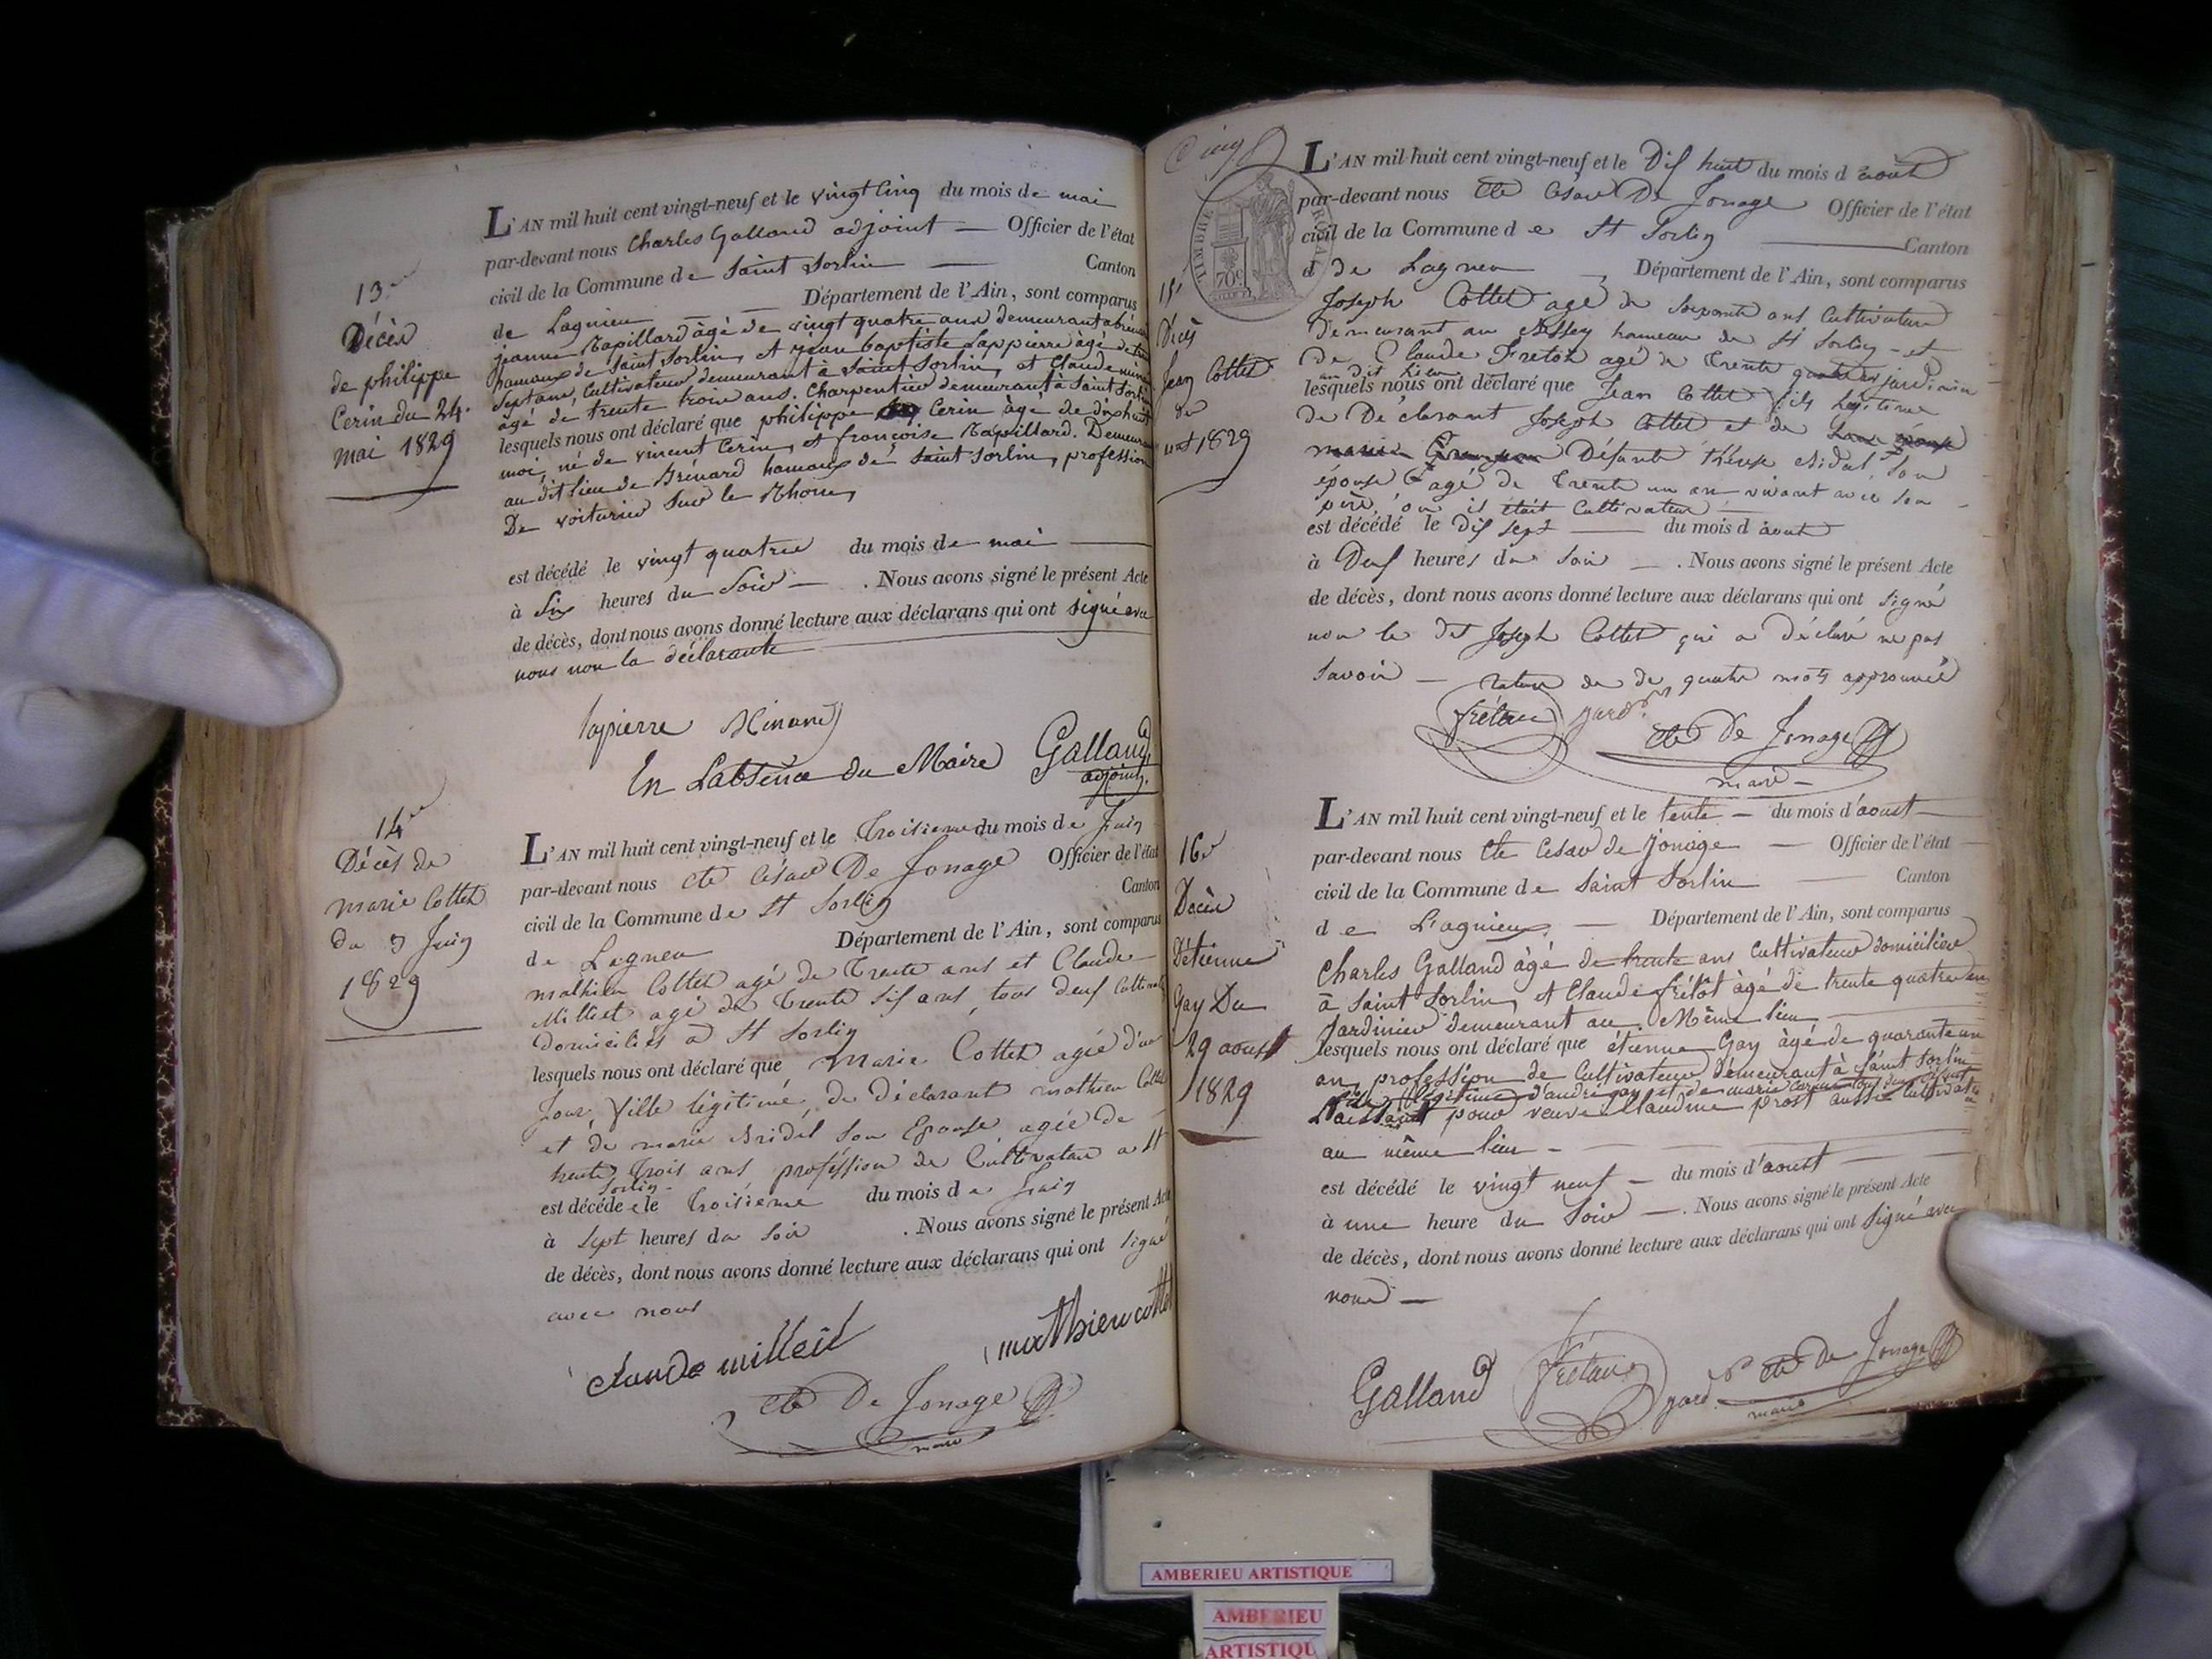 13e
Décès
de philippe
Cerin du 24.
mai 1829
L'AN mil huit cent vingt-neuf et le vingt cinq du mois de mai
par-devant nous Charles Galland adjoint — Officier de l'état
civil de la Commune de Saint Sorlin — Canton
de Lagnieu — Département de l'Ain, sont comparus
jeanne Rapillard âgé de vingt quatre ans demeurant a
hameaux de Saint Sorlin, et jean baptiste Lappierre âgé de
Septans, Cultivateur demeurant à Saint Sorlin, et Claude
agé de trente trois ans. Charpentier demeurant à Saint Sorlin
lesquels nous ont déclaré que philippe Cerin âgé de dix huit
moi, né de vincent Cerin, et françoise Rapillard. Demeurant
au dit lieu de Brénard hameaux de Saint Sorlin, profession
De voiturier Sur le Rhone,
est décédé le vingt quatre du mois de mai —
à Six heures du Soir — . Nous avons signé le présent Acte
de décès, dont nous avons donné lecture aux déclarans qui ont signé avec
nous non la déclarante —
lapierre
En Labsence du Maire Galland
adjoint.
14e
Décès de
marie Cottet
du 3 Juin
1829
L'AN mil huit cent vingt-neuf et le troisieme du mois de Juin
par-devant nous cte César De Jonage Officier de l'état
civil de la Commune de St Sorlin Canton
de Lagneu Département de l'Ain, sont comparus
mathieu Cottet agé de Trente ans et Claude
Milliet agé de Trente sis ans, tous deus Cultivat
domiciliés a St Sorlin
lesquels nous ont déclaré que Marie Cottet agée d'un
Jour, fille légitime de déclarant mathieu Cottet
et de marie Bridel son Epouse agée de
trente Trois ans profession de Cultivateur a St
Sorlin
est décédée le Troisieme du mois de Juin
à sept heures du soir . Nous avons signé le présent Acte
de décès, dont nous avons donné lecture aux déclarans qui ont signé
avec nous
claude milleit mathieu cottet
cte De Jonage
maire
Cinq
TIMBRE ROYAL
70c
15e
Décès
Jean Cottet
du
aout 1829
L'AN mil huit cent vingt-neuf et le Dis huit du mois d aout
par-devant nous Cte Cesar De Jonage Officier de l'état
civil de la Commune d e St Sorlin — Canton
d de Lagneu — Département de l'Ain, sont comparus
Joseph Cottet agé de soixante ans Cultivateur
demeurant au hameau de St Sorlin - et
de Claude Fretot agé de Trente quatre jardinier
au dit lieu
lesquels nous ont déclaré que Jean Cottet fils légitime
de Déclarant Joseph Cottet et de
marie Défunte thérese Bidal son
épouse agé de Trente un an vivant avec son
père, ou il était Cultivateur —
est décédé le dis sept — du mois d aout
à Deus heures du soir — . Nous avons signé le présent Acte
de décès, dont nous avons donné lecture aux déclarans qui ont signé
non le dit Joseph Cottet qui a Déclaré ne pas
savoir — rature de de quatre mots approuvée
cte De Jonage
maire
16e
Décès
D'étienne
Gay Du
29 aoust
1829
L'AN mil huit cent vingt-neuf et le tente — du mois d'aoust —
par-devant nous cte Cesar de Jonage — Officier de l'état
civil de la Commune de Saint Sorlin — Canton
d e Lagnieu, — Département de l'Ain, sont comparus
Charles Galland âgé de trente ans Cultivateur domicilié
à Saint Sorlin, et Claude frétôt âgé de trente quatre ans
Jardinier demeurant au Même lieu —
lesquels nous ont déclaré que étienne Gay âgé de quarante un
an, profession de Cultivateur demeurant à Saint Sorlin
fils légitime d'andré gay et de marie
Laissant pour veuve Claudine prost aussi Cultivat
au même lieu —
est décédé le vingt neuf — du mois d'aoust —
à une heure du Soir —. Nous avons signé le présent Acte
de décès, dont nous avons donné lecture aux déclarans qui ont signé avec
nous —
Galland cte de Jonage
maire
AMBERIEU ARTISTIQUE
AMBERIEU
ARTISTIQU